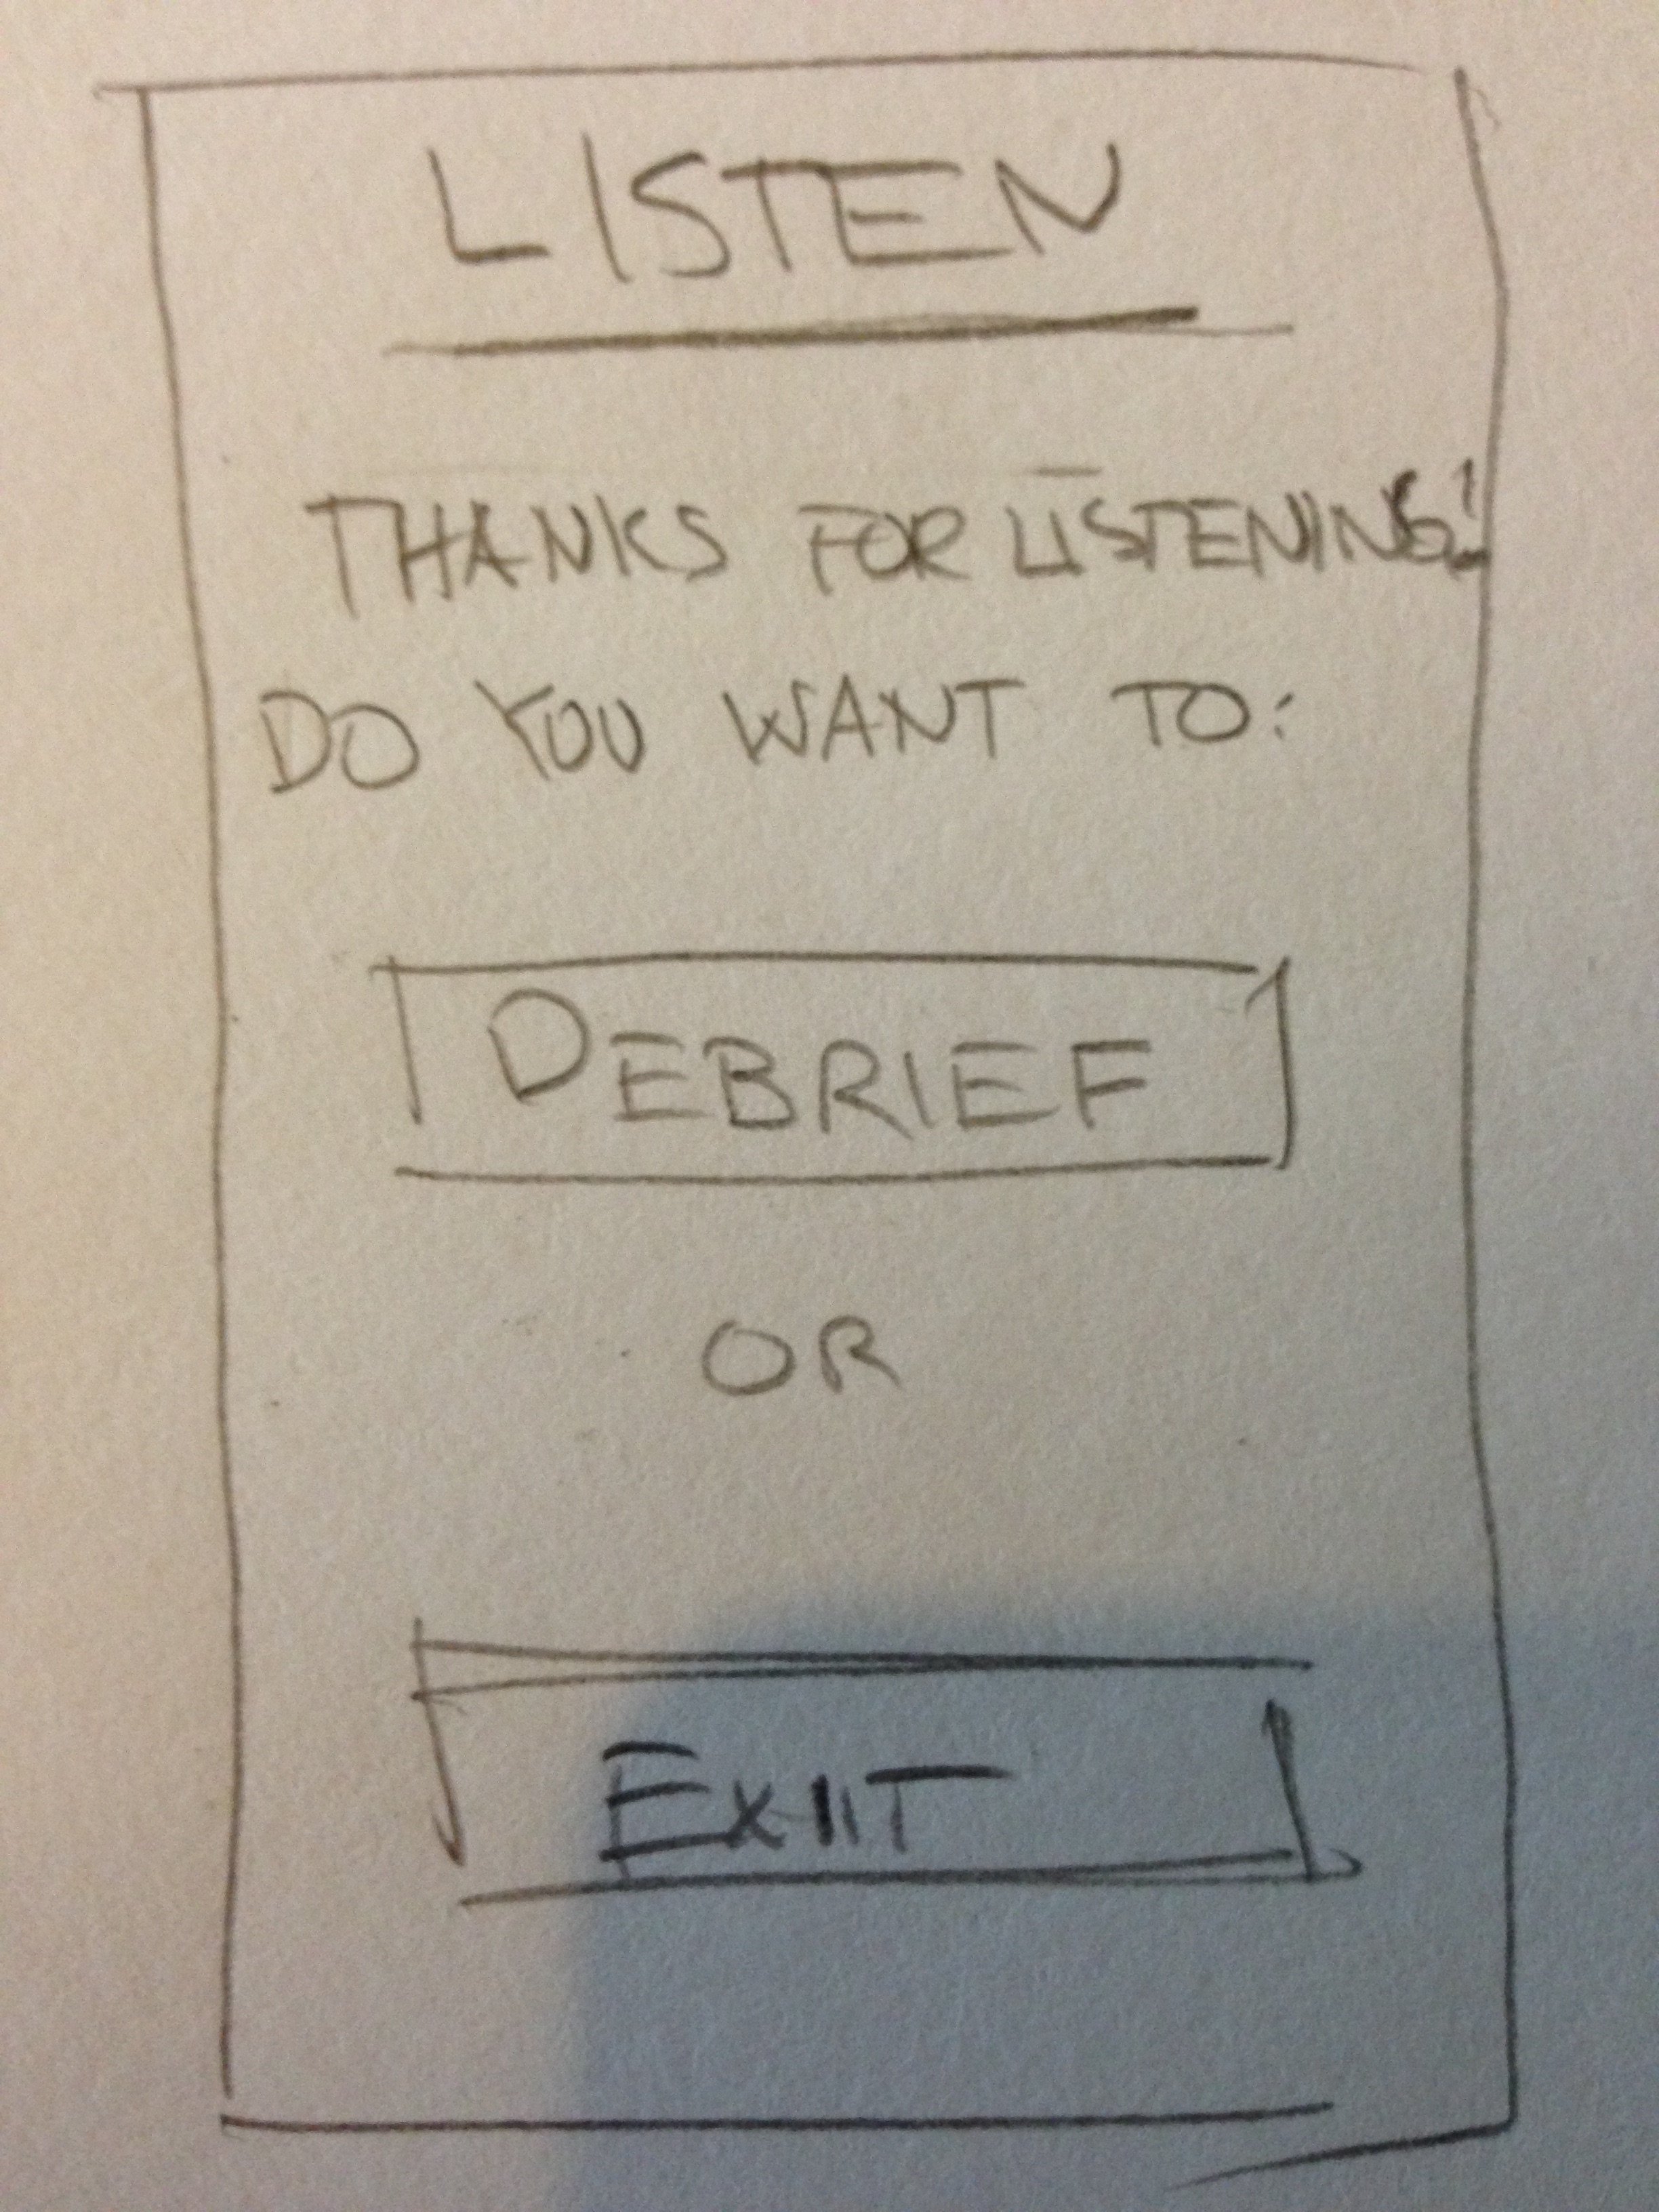 LISTEN
THANKS FOR LISTENING!
DO YOU WANT TO:
DEBRIEF
OR
EXIT